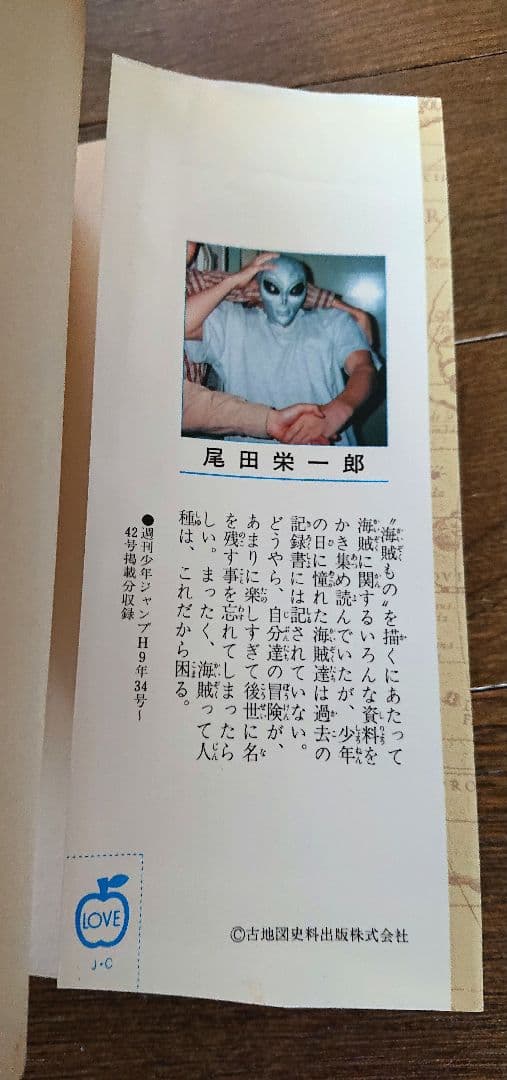 尾田栄一郎
“海賊もの”を描くにあたって
海賊に関するいろんな資料を
かき集め読んでいたが、少年
の日に憧れた海賊達は過去の
記録書には記されていない。
どうやら、自分達の冒険が、
あまりに楽しすぎて後世に名
を残す事を忘れてしまったら
しい。まったく、海賊って人
種は、これだから困る。
●週刊少年ジャンプH9年34号~
42号掲載分収録
LOVE
J・C
©古地図史料出版株式会社